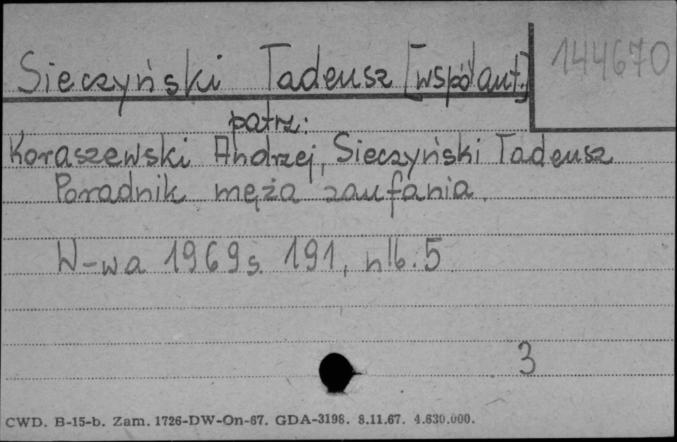 Sieczyński Tadeusz [współaut.]
144670
patrz:
Koraszewski Andrzej, Sieczyński Tadeusz
Poradnik męża zaufania.
W-wa 1969 s. 191, nlb. 5
3
CWD. B-15-b. Zam. 1726-DW-On-67. GDA-3198. 8.11.67. 4.630.000.